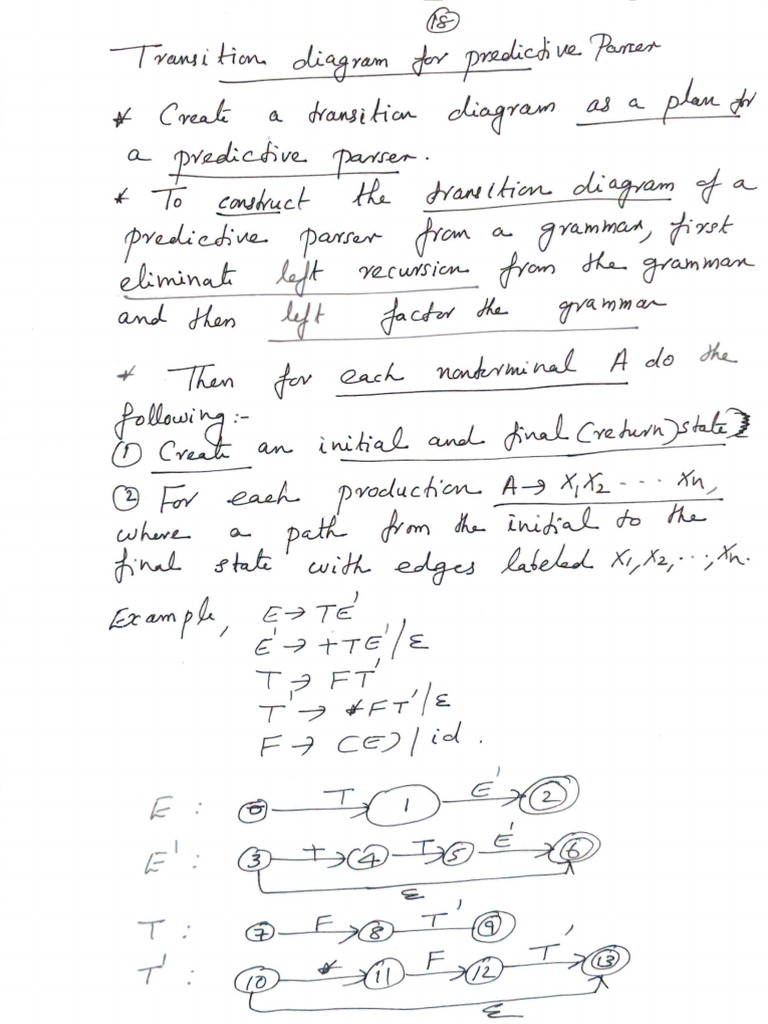 18
Transition diagram for predictive Parser
* Create a transition diagram as a plan for
a predictive parser.
* To construct the transition diagram of a
predictive parser from a grammar, first
eliminate left recursion from the grammar
and then left factor the grammar
* Then for each nonterminal A do the
following:-
① Create an initial and final (return) state
② For each production A → X₁X₂ --- Xn,
where a path from the initial to the
final state with edges labeled X₁, X₂, ..., Xn.
Example, E → TE'
E' → +TE'/ε
T → FT'
T' → *FT'/ε
F → (E)/id.
E: 0 T 1 E' 2
E': 3 + 4 T 5 E' 6
ε
T: 7 F 8 T' 9
T': 10 * 11 F 12 T' 13
ε